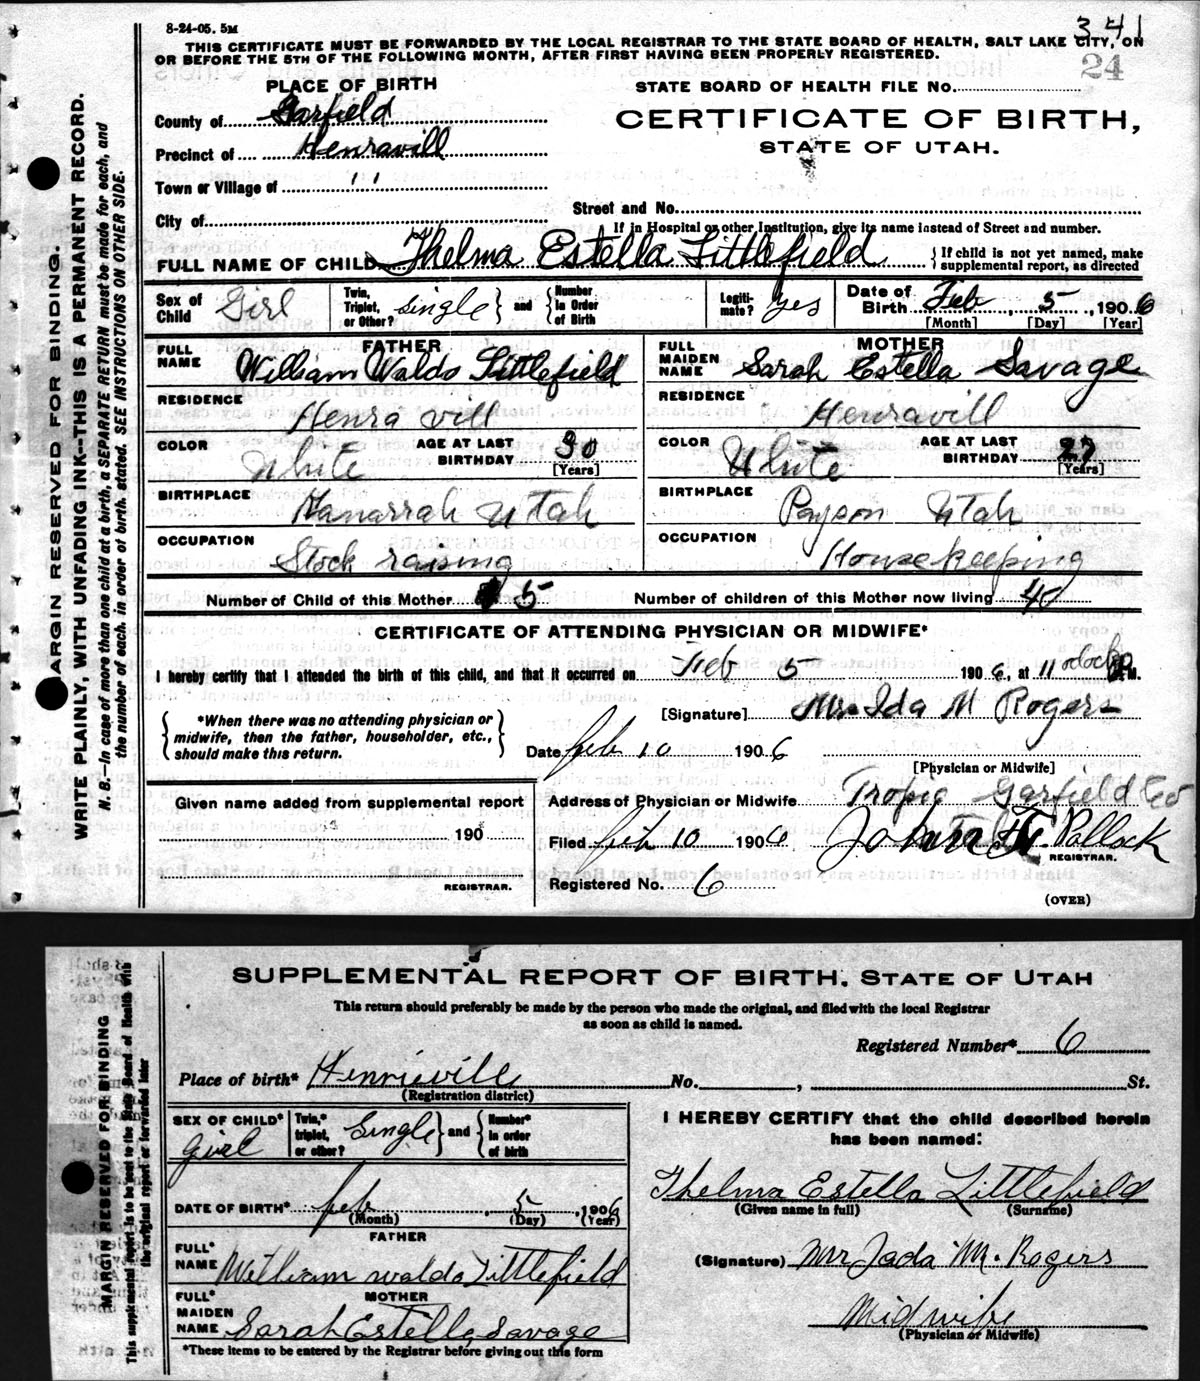 8-24-05. 5M
341
THIS CERTIFICATE MUST BE FORWARDED BY THE LOCAL REGISTRAR TO THE STATE BOARD OF HEALTH, SALT LAKE CITY, ON
OR BEFORE THE 5TH OF THE FOLLOWING MONTH, AFTER FIRST HAVING BEEN PROPERLY REGISTERED.
24
PLACE OF BIRTH
STATE BOARD OF HEALTH FILE NO.
County of Garfield
CERTIFICATE OF BIRTH,
Precinct of Henravill
STATE OF UTAH.
Town or Village of " "
City of
Street and No.
If in Hospital or other Institution, give its name instead of Street and number.
FULL NAME OF CHILD Thelma Estella Littlefield { If child is not yet named, make
supplemental report, as directed
Sex of Child Girl
Twin, Triplet, or Other? single } and { Number in Order of Birth
Legiti-mate? yes
Date of Birth Feb 5, 1906
[Month] [Day] [Year]
FATHER
FULL NAME William Waldo Littlefield
MOTHER
FULL MAIDEN NAME Sarah Estella Savage
RESIDENCE Henra vill
RESIDENCE Henravill
COLOR White AGE AT LAST BIRTHDAY 30 [Years]
COLOR White AGE AT LAST BIRTHDAY 27 [Years]
BIRTHPLACE Kanarrah Utah
BIRTHPLACE Payson Utah
OCCUPATION Stock raising
OCCUPATION Housekeeping
Number of Child of this Mother 5
Number of children of this Mother now living 40
CERTIFICATE OF ATTENDING PHYSICIAN OR MIDWIFE*
I hereby certify that I attended the birth of this child, and that it occurred on Feb 5 1906, at 11 oclock P M.
{ *When there was no attending physician or
midwife, then the father, householder, etc.,
should make this return. }
[Signature] Mrs Ida M Rogers
Date feb 10 1906
[Physician or Midwife]
Given name added from supplemental report
190
REGISTRAR.
Address of Physician or Midwife Tropic Garfield Co
Filed feb 10 1906 John Pollock
REGISTRAR.
Registered No. 6
(OVER)
MARGIN RESERVED FOR BINDING.
WRITE PLAINLY, WITH UNFADING INK--THIS IS A PERMANENT RECORD.
N. B.—In case of more than one child at a birth, a SEPARATE RETURN must be made for each, and
the number of each, in order of birth, stated. SEE INSTRUCTIONS ON OTHER SIDE.
SUPPLEMENTAL REPORT OF BIRTH. STATE OF UTAH
This return should preferably be made by the person who made the original, and filed with the local Registrar
as soon as child is named.
Registered Number* 6
Place of birth* Henrieville No. , St.
(Registration district)
SEX OF CHILD* girl
Twin,* triplet, or other? Single } and { Number* in order of birth
I HEREBY CERTIFY that the child described herein
has been named:
Thelma Estella Littlefield
(Given name in full) (Surname)
DATE OF BIRTH* feb 5, 1906
(Month) (Day) (Year)
FATHER
FULL* NAME William waldo Littlefield
(Signature) Mrs Iada M. Rogers
MOTHER
FULL* MAIDEN NAME Sarah Estella Savage
Midwife
(Physician or Midwife)
*These items to be entered by the Registrar before giving out this form
MARGIN RESERVED FOR BINDING
This supplemental report is to be sent to the State Board of Health with
the original report or forwarded later